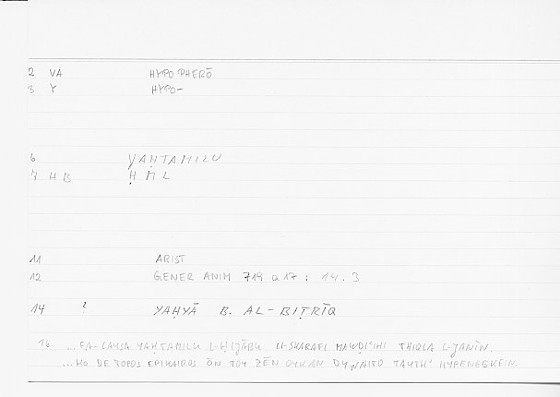 2 VA HYPOPHERŌ
3 Y HYPO-
6 YAḤTAMILU
7 H B Ḥ M L
11 ARIST
12 GENER ANIM 719 a 17 : 14.3
14 ? YAḤYĀ B. AL-BIṬRĪQ
16 ... FA-LAYSA YAḤTAMILU L-ḤIJĀBU LI-SHARAFI MAWḌIʿIHI THIQLA L-JANĪN.
... HO DE TOPOS EPIKAIROS ŌN TOY ZĒN OYK AN DYNAITO TAYTH' HYPENEGKEIN.